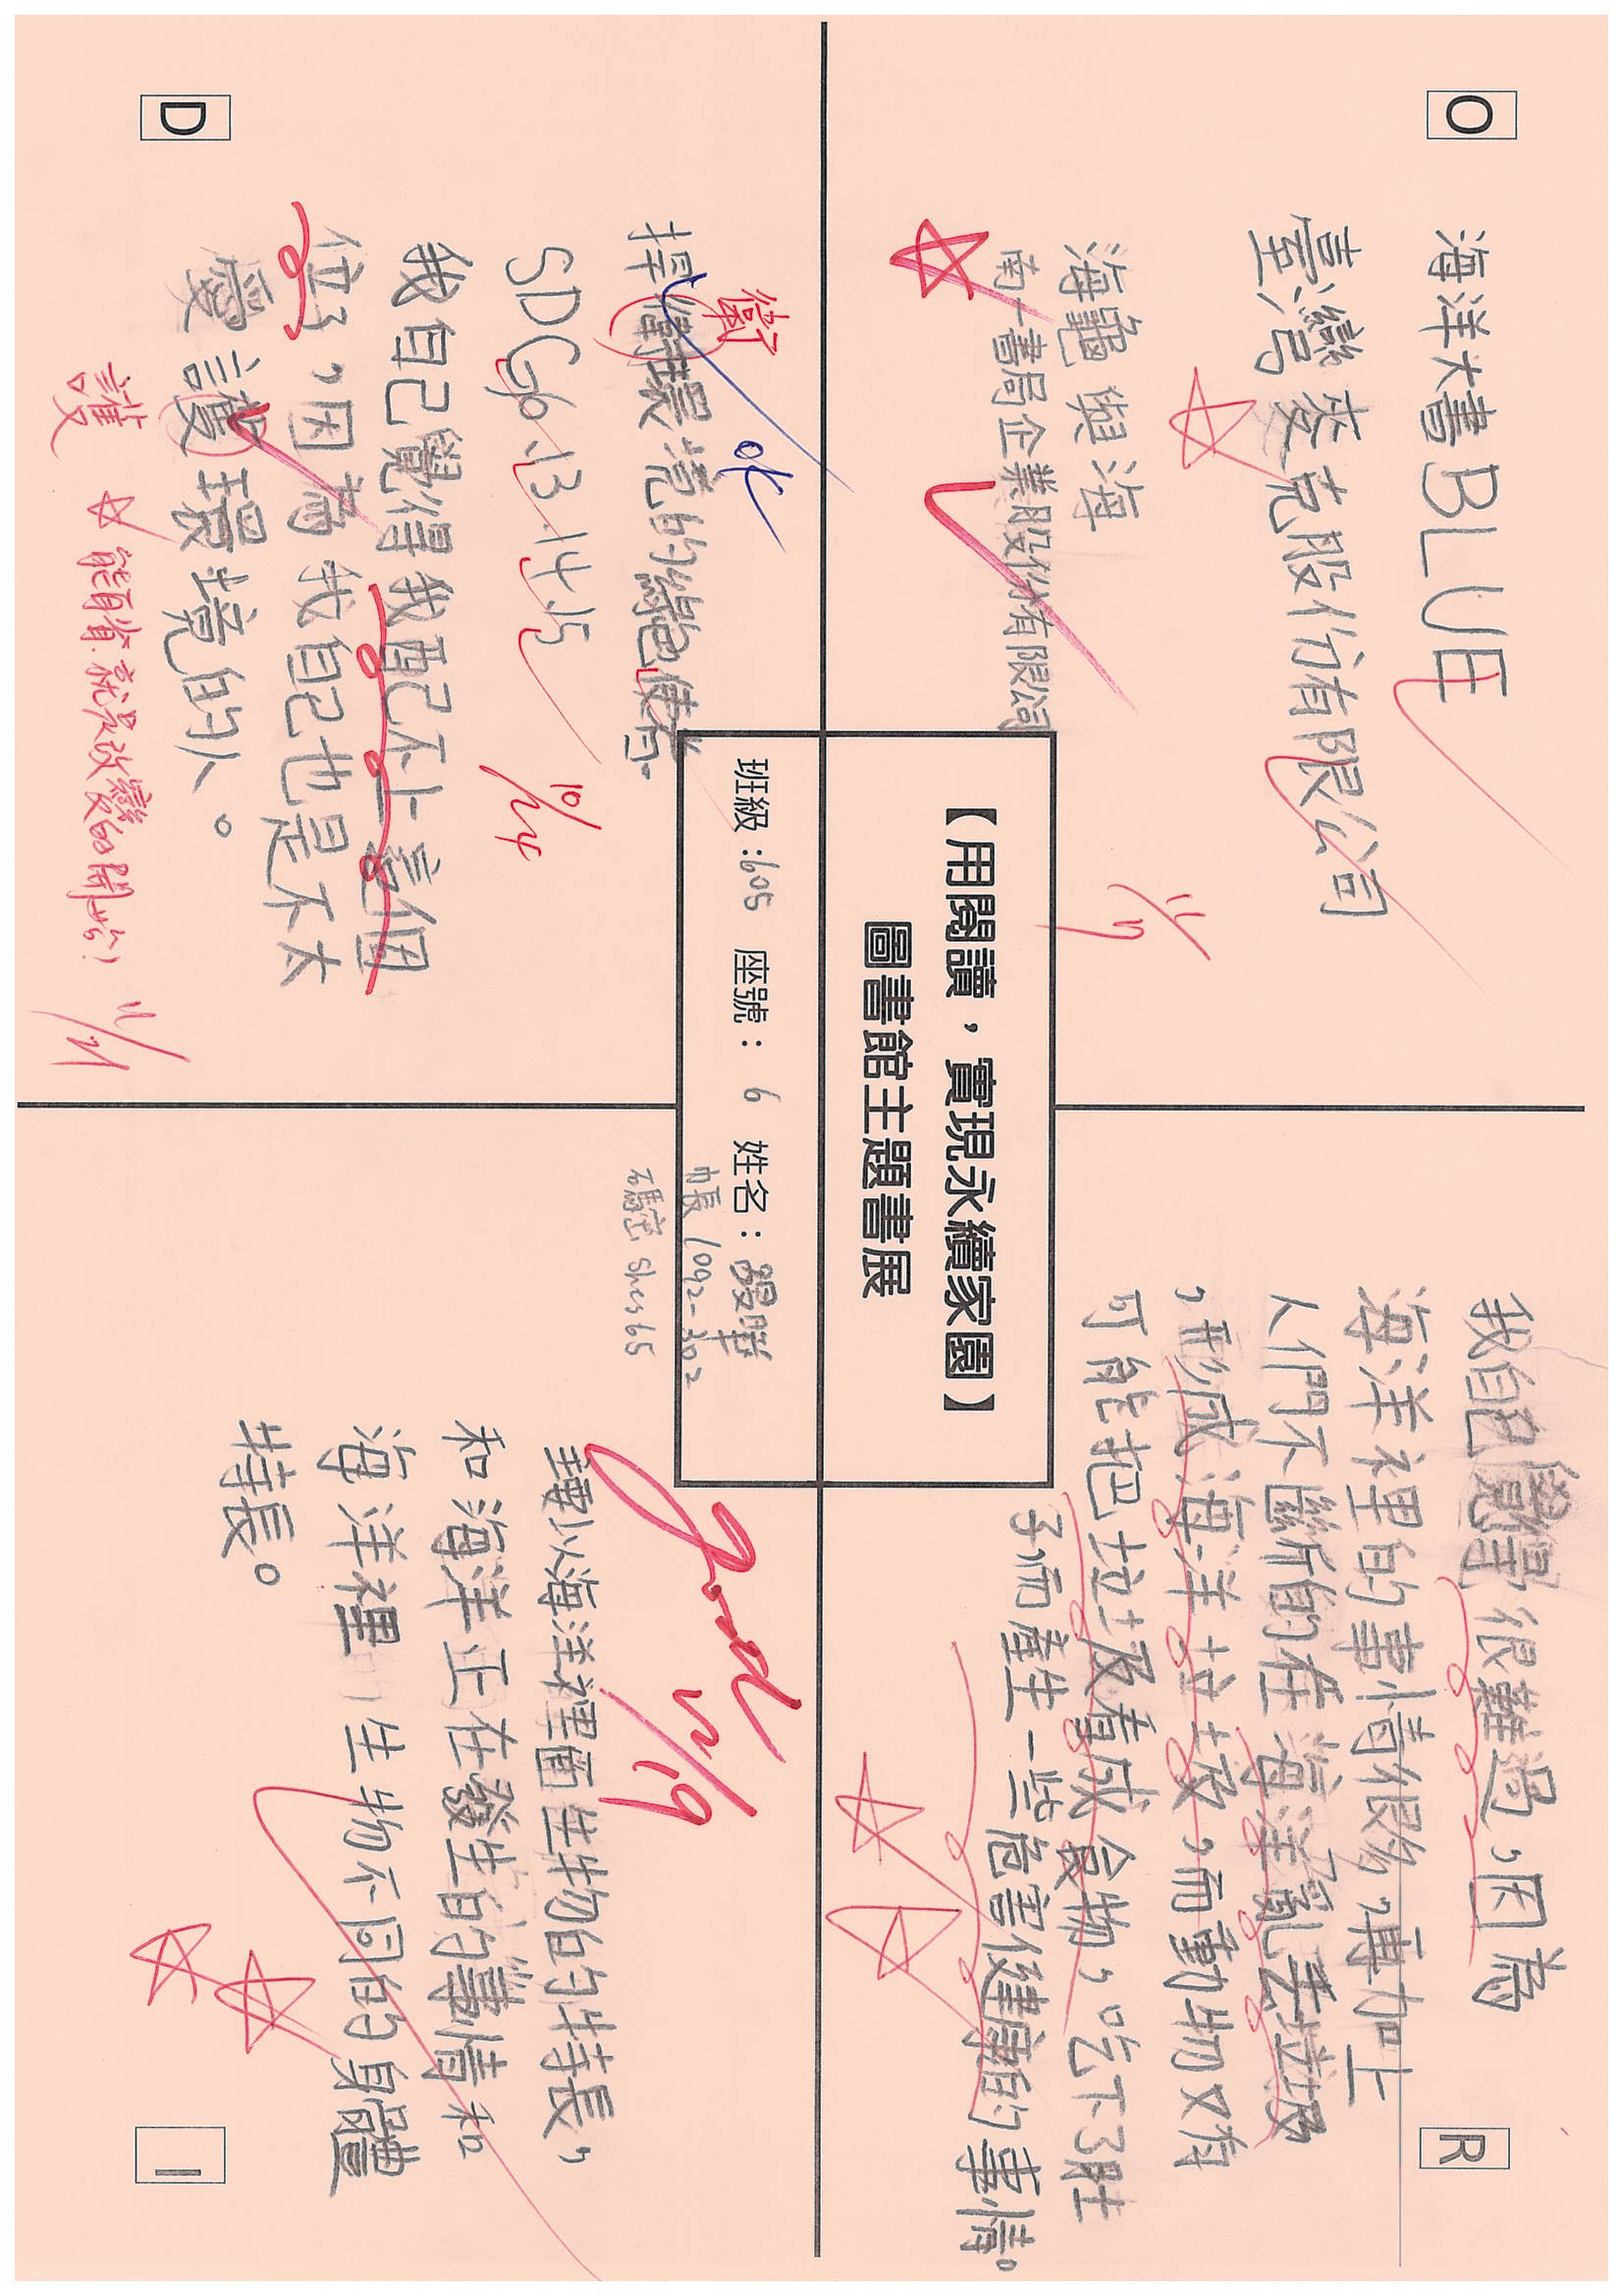 O
海洋大書BLUE
臺灣麥克股份有限公司
海龜與海
南一書局企業股份有限公司
11/7
R
我自己覺得很難過，因為
海洋裡的事情很多，再加上
人們不斷的在海洋亂丟垃圾
，形成海洋垃圾，而動物又有
可能把垃圾看成食物，吃下肚
子而產生一些危害健康的事情。
【用閱讀，實現永續家園】
圖書館主題書展
班級：605 座號： 6 姓名：
帳 1092-302
碼密 shes65
D
捍衛環境的綠色使者。
衛
ok
SDG6.13.14.15
10/24
我自己覺得我配不上這個
位子，因為我自己也是不太
愛護環境的人。
護
能自省，就是改變的開始！
11/21
I
讀以海洋裡面生物的特長，
和海洋正在發生的事情和
海洋裡生物不同的身體
特長。
Good
12/19